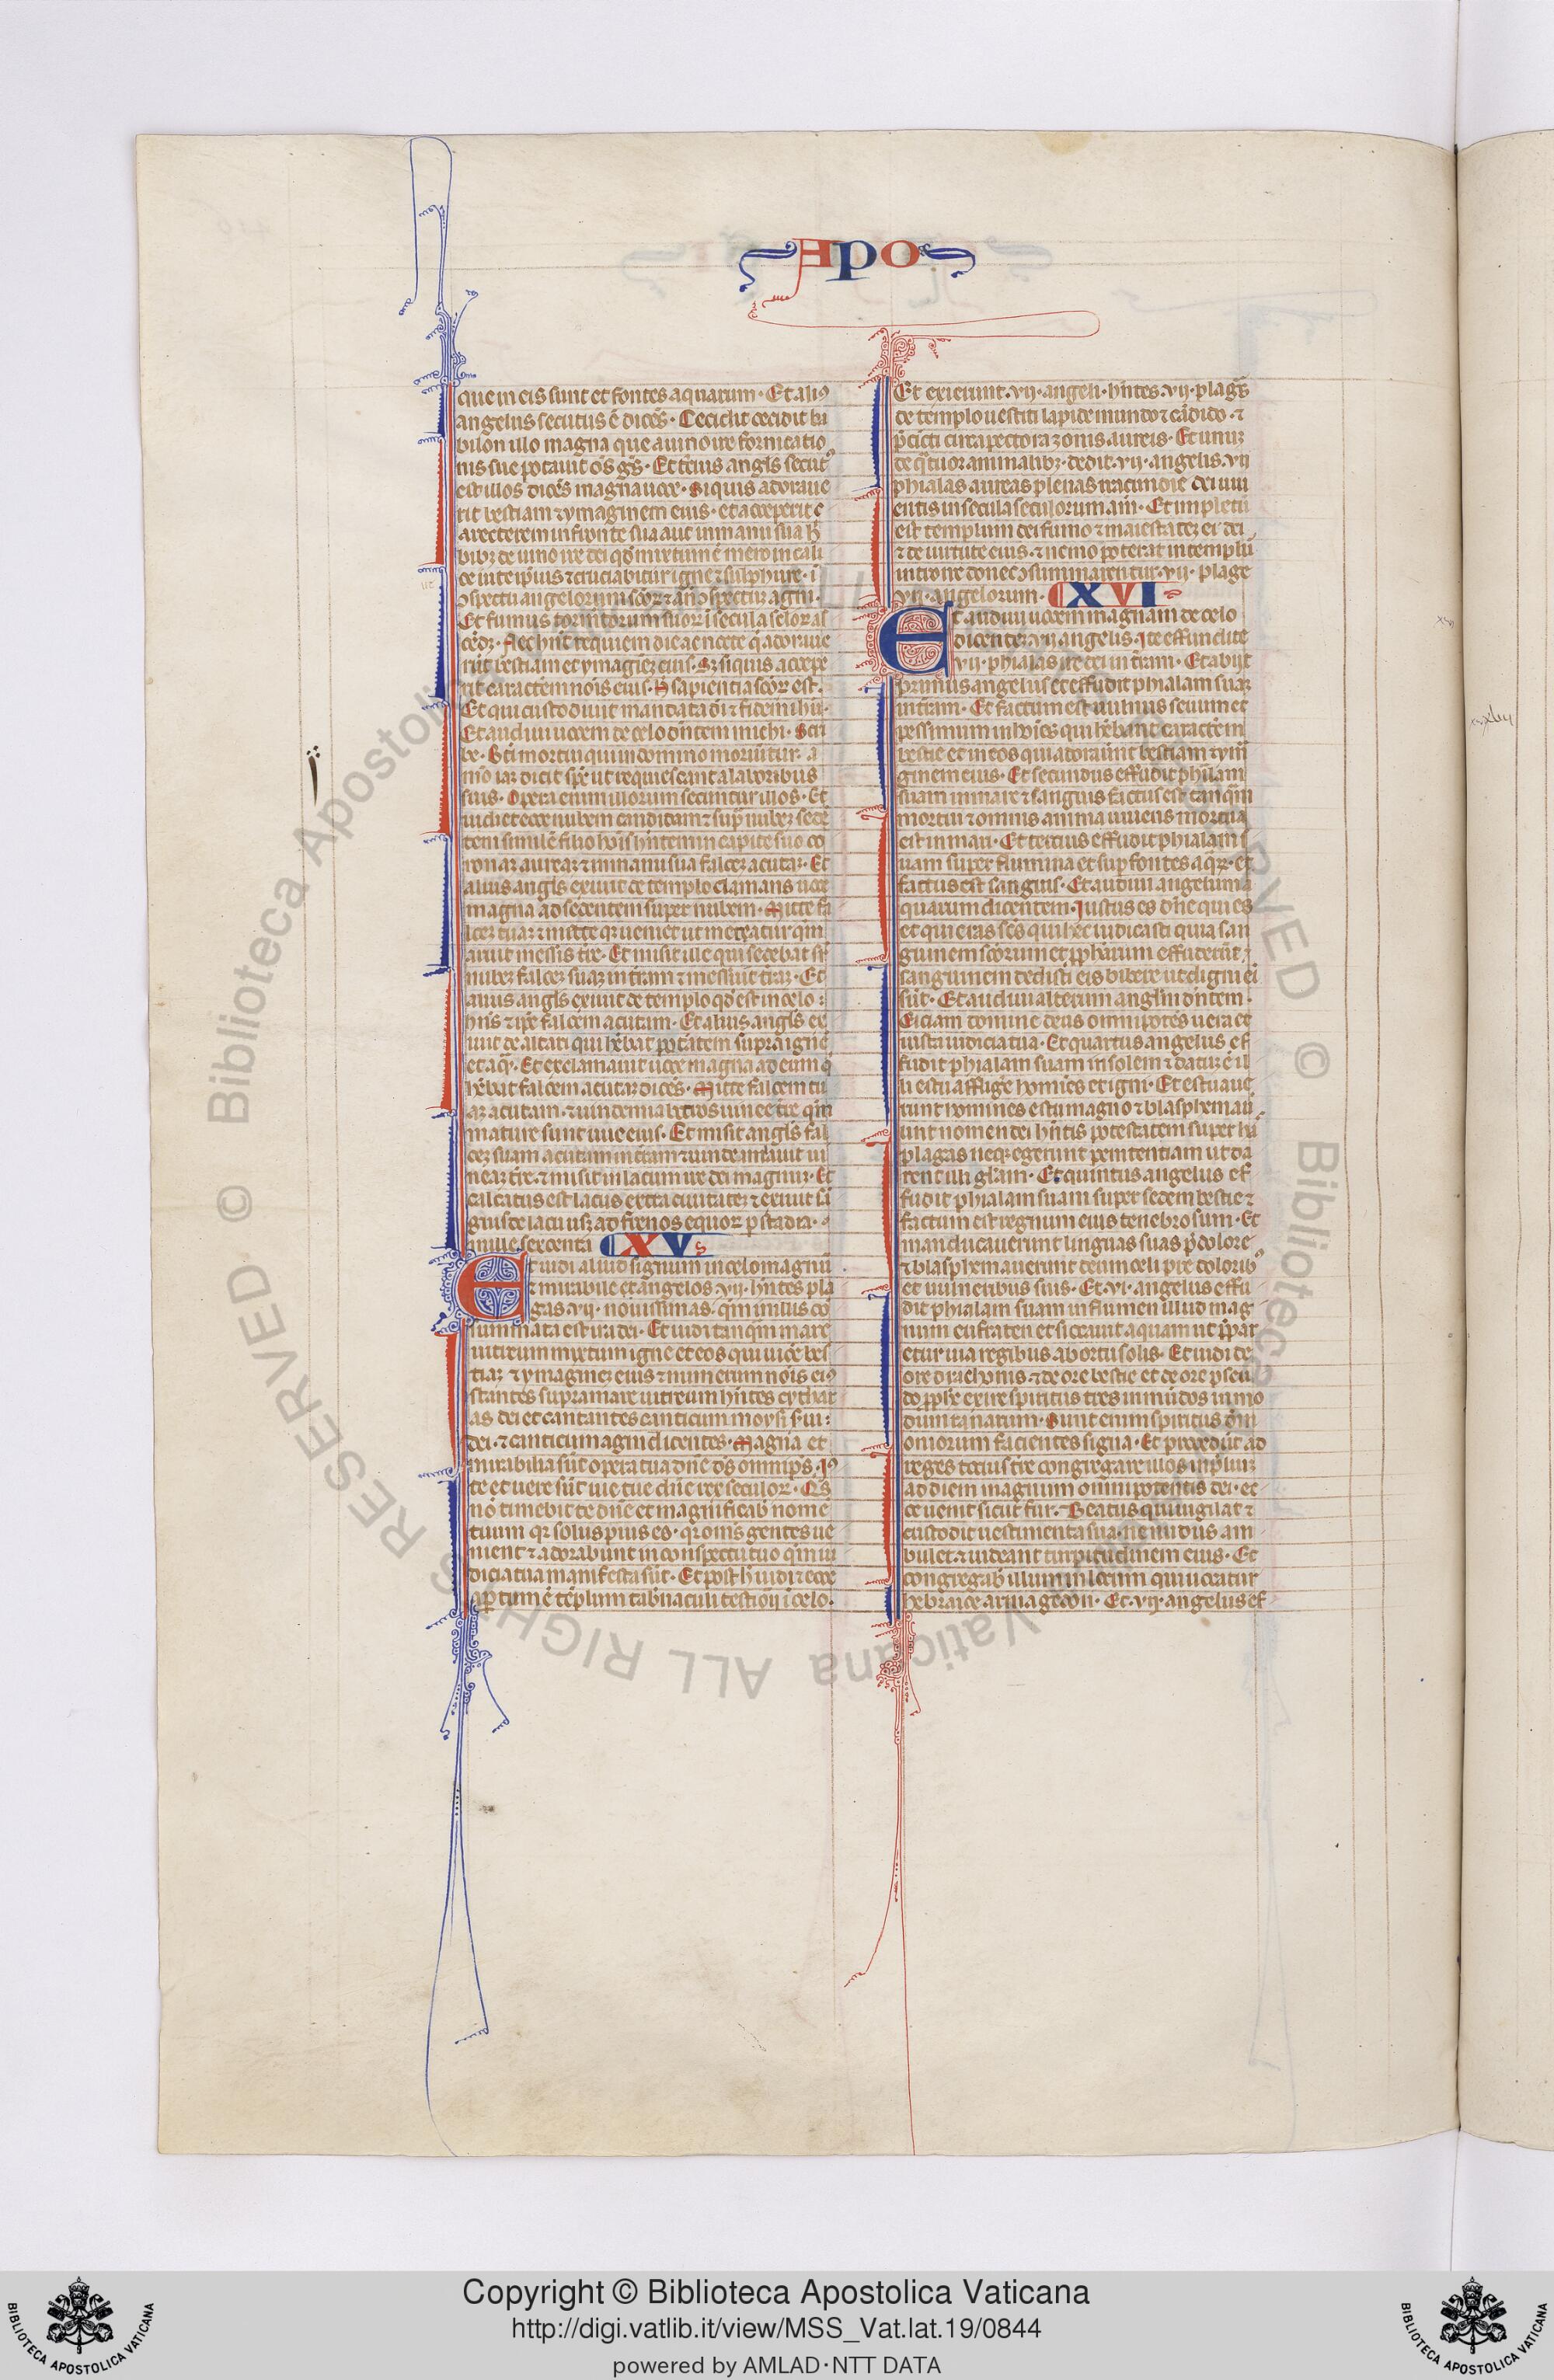 Apo
que in eis sunt et fontes aquarum · Et aliꝰ
angelus secutus ē dicēs · Cecidit cecidit ba
bilon illo magna que a uino ire fornicatio
nis sue potauit oēs gētes · Et tertius angls secut᷒
est illos dicēs magna uoce · Siquis adoraue
rit bestiam ⁊ ymaginem eius · et acceperit c
arecterem in fronte sua aut in manu sua h̄
bibꝫ de uino ire dei qd̄ mixtum ē mero in cali
ce ire ipius ⁊ cruciabitur igne ⁊ sulphure · ī
ꝯspectu angelorum scōꝝ ⁊ an̄ ꝯspectuꝫ agni ·
Et fumus tormētorum suoꝝ ī secula sclōꝝ as
cēdꝫ · Nec hn̄t requiem die ac nocte q̄ adoraue
rūt bestiam et ymaginēꝫ eius · ⁊ siquis accepe
rit caracterem nōis eius · H̄ sapientia scōꝝ est ·
Et qui custodiunt mandata dī ⁊ fidem ihū ·
Et audiui uocem de celo dn̄tem michi · Scri
be · Bti mortui qui in domino moriūtur · a
mō iaꝫ dicit spc̄ ut requiescant a laboribus
suis · Opera enim illorum secuntur illos · Et
uidi et ecce nubem candidam ⁊ sup̄ nubeꝫ sedē
tem similē filio hoīs hn̄tem in capite suo co
ronaꝫ aureaꝫ ⁊ in manu sua falceꝫ acutaꝫ · Et
alius angls exiuit de templo clamans uoce
magna ad sedentem super nubem · Mitte fa
lceꝫ tuaꝫ ⁊ mete qꝛ uenit hora ut metatur qm̄
aruit messis tr̄e · Et misit ille qui sedebat sr̄
nubeꝫ falceꝫ suaꝫ in tr̄am ⁊ messuit tr̄aꝫ · Et
alius angls exiuit de templo qd̄ est in celo :
hn̄s ⁊ ip̄e falcem acutam · Et alius angls ex
iuit de altari qui hēbat ptātem supra ignē
et aq̄ · Et exclamauit uoce magna ad eum q̄
hēbat falcem acutaꝫ dicēs · Mitte falcem tu
aꝫ acutam · ⁊ uindemia botros uinee tr̄e qm̄
mature sunt uue eius · Et misit angls fal
ceꝫ suam acutam in tr̄am ⁊ uindemiauit ui
neaꝫ tr̄e · ⁊ misit in lacum ire dei magnuꝫ · Et
calcatus est lacus extra ciuitateꝫ ⁊ exiuit sā
guis de lacu usqꝫ ad frenos equoꝝ p stadia ·
mille sexcenta XV
Et uidi aliud signum in celo magnū
⁊ mirabile ⁊ angelos · vij · hn̄tes pla
gas vij · nouissimas · qm̄ in illis cō
summata est ira dei · Et uidi tanq̄m mare
uitreum mixtum igne et eos qui uicēt bes
tiaꝫ ⁊ ymagineꝫ eius ⁊ numerum nōis eiꝰ
stantes supra mare uitreum hn̄tes cythar
as dei et cantantes canticum moysi serui
dei · ⁊ canticum agni dicentes · Magna et
mirabilia sūt opera tua dn̄e ds̄ omnips · Iꝰ
te et uere sūt uie tue dn̄e rex seculoꝝ · Qis
nō timebit te dn̄e et magnificabit nomē
tuum qꝛ solus pius es · qꝛ oms gentes ue
nient ⁊ adorabunt in conspectu tuo qm̄ iu
dicia tua manifesta sūt · Et post h̄ uidi ⁊ ecce
aptum ē tēplum tabnaculi testiōij ī celo ·
Et exierunt · vij · angeli · hn̄tes · vij · plagas
de templo uestiti lapide mundo ⁊ cādido · ⁊
p̄cincti circa pectora zonis aureis · Et unuꝫ
de q̄tuor animalibꝫ · dedit · vij · angelis · vij
phialas aureas plenas iracundie dei uiu
entis in secula seculorum · am̄ · Et impletū
est templum dei fumo a maiestate dei
⁊ de uirtute eius · ⁊ nemo poterat in templū
introire donec ꝯsummarentur · vij · plage
vij · angelorum · XVI
Et audiui uocem magnam de celo
dicentē vij angelis · Ite effundite
vij · phialas ire dei in tr̄am · Et abijt
primus angelus et effudit phialam suaꝫ
in tr̄am · Et factum est uulnus seuum et
pessimum in hoīes qui hēbant caracterem
bestie et in eos qui adorauerunt bestiam ⁊ yma
ginem eius · Et secundus effudit phialam
suam in mare ⁊ sanguis factus est tanq̄m
mortui ⁊ omnis anima uiuens mortua
est in mari · Et tercius effudit phialam s
uam super flumina et sup fontes aq̄ꝝ · et
factus est sanguis · Et audiui angelum a
quarum dicentem · Iustus es dn̄e qui es
et qui eras scs̄ qui hec iudicasti quia san
guinem scōrum et pphetarum effuderūt ⁊
sanguinem dedisti eis bibere ut digni ei
sūt · Et audiui alterum anglm̄ dn̄tem ·
Etiam domine deus omnipotēs uera et
iusta iudicia tua · Et quartus angelus ef
fudit phialam suam in solem ⁊ datuꝫ ē il
li estu affligere homīes et igni · Et estuaue
runt homines estu magno ⁊ blasphemau
unt nomen dei hn̄tis potestatem super has
plagas neqꝫ egerunt penitentiam ut da
rent illi gl̄am · Et quintus angelus ef
fudit phialam suam super sedem bestie ⁊
factum est regnum eius tenebrosum · Et
manducauerunt linguas suas p̄ dolore
⁊ blasphemauerunt deum celi pre doloribꝰ
et uulneribus suis · Et · vi · angelus effu
dit phialam suam in flumen illud mag
num eufraten et siccauit aquam ut p̄par
etur uia regibus ab ortu solis · Et uidi de
ore drachonis ⁊ de ore bestie et de ore pseu
do pphe exire spiritus tres inmūdos in mo
dum ranarum · Sunt enim spiritus dem
oniorum facientes signa · Et procedūt ad
reges totius tr̄e congregare illos in p̄liuꝫ
ad diem magnum omnipotentis dei · ec
ce uenit sicut fur · Beatus qui uigilat ⁊
custodit uestimenta sua · ne nudus am
bulet · ⁊ uideant turpitudinem eius · Et
congregabit illum in locum qui uocatur
hebraice armagedon · Et · vij · angelus ef
Copyright © Biblioteca Apostolica Vaticana
http://digi.vatlib.it/view/MSS_Vat.lat.19/0844
powered by AMLAD·NTT DATA
BIBLIOTECA APOSTOLICA VATICANA
BIBLIOTECA APOSTOLICA VATICANA
© Biblioteca Apostolica Vaticana ALL RIGHTS RESERVED